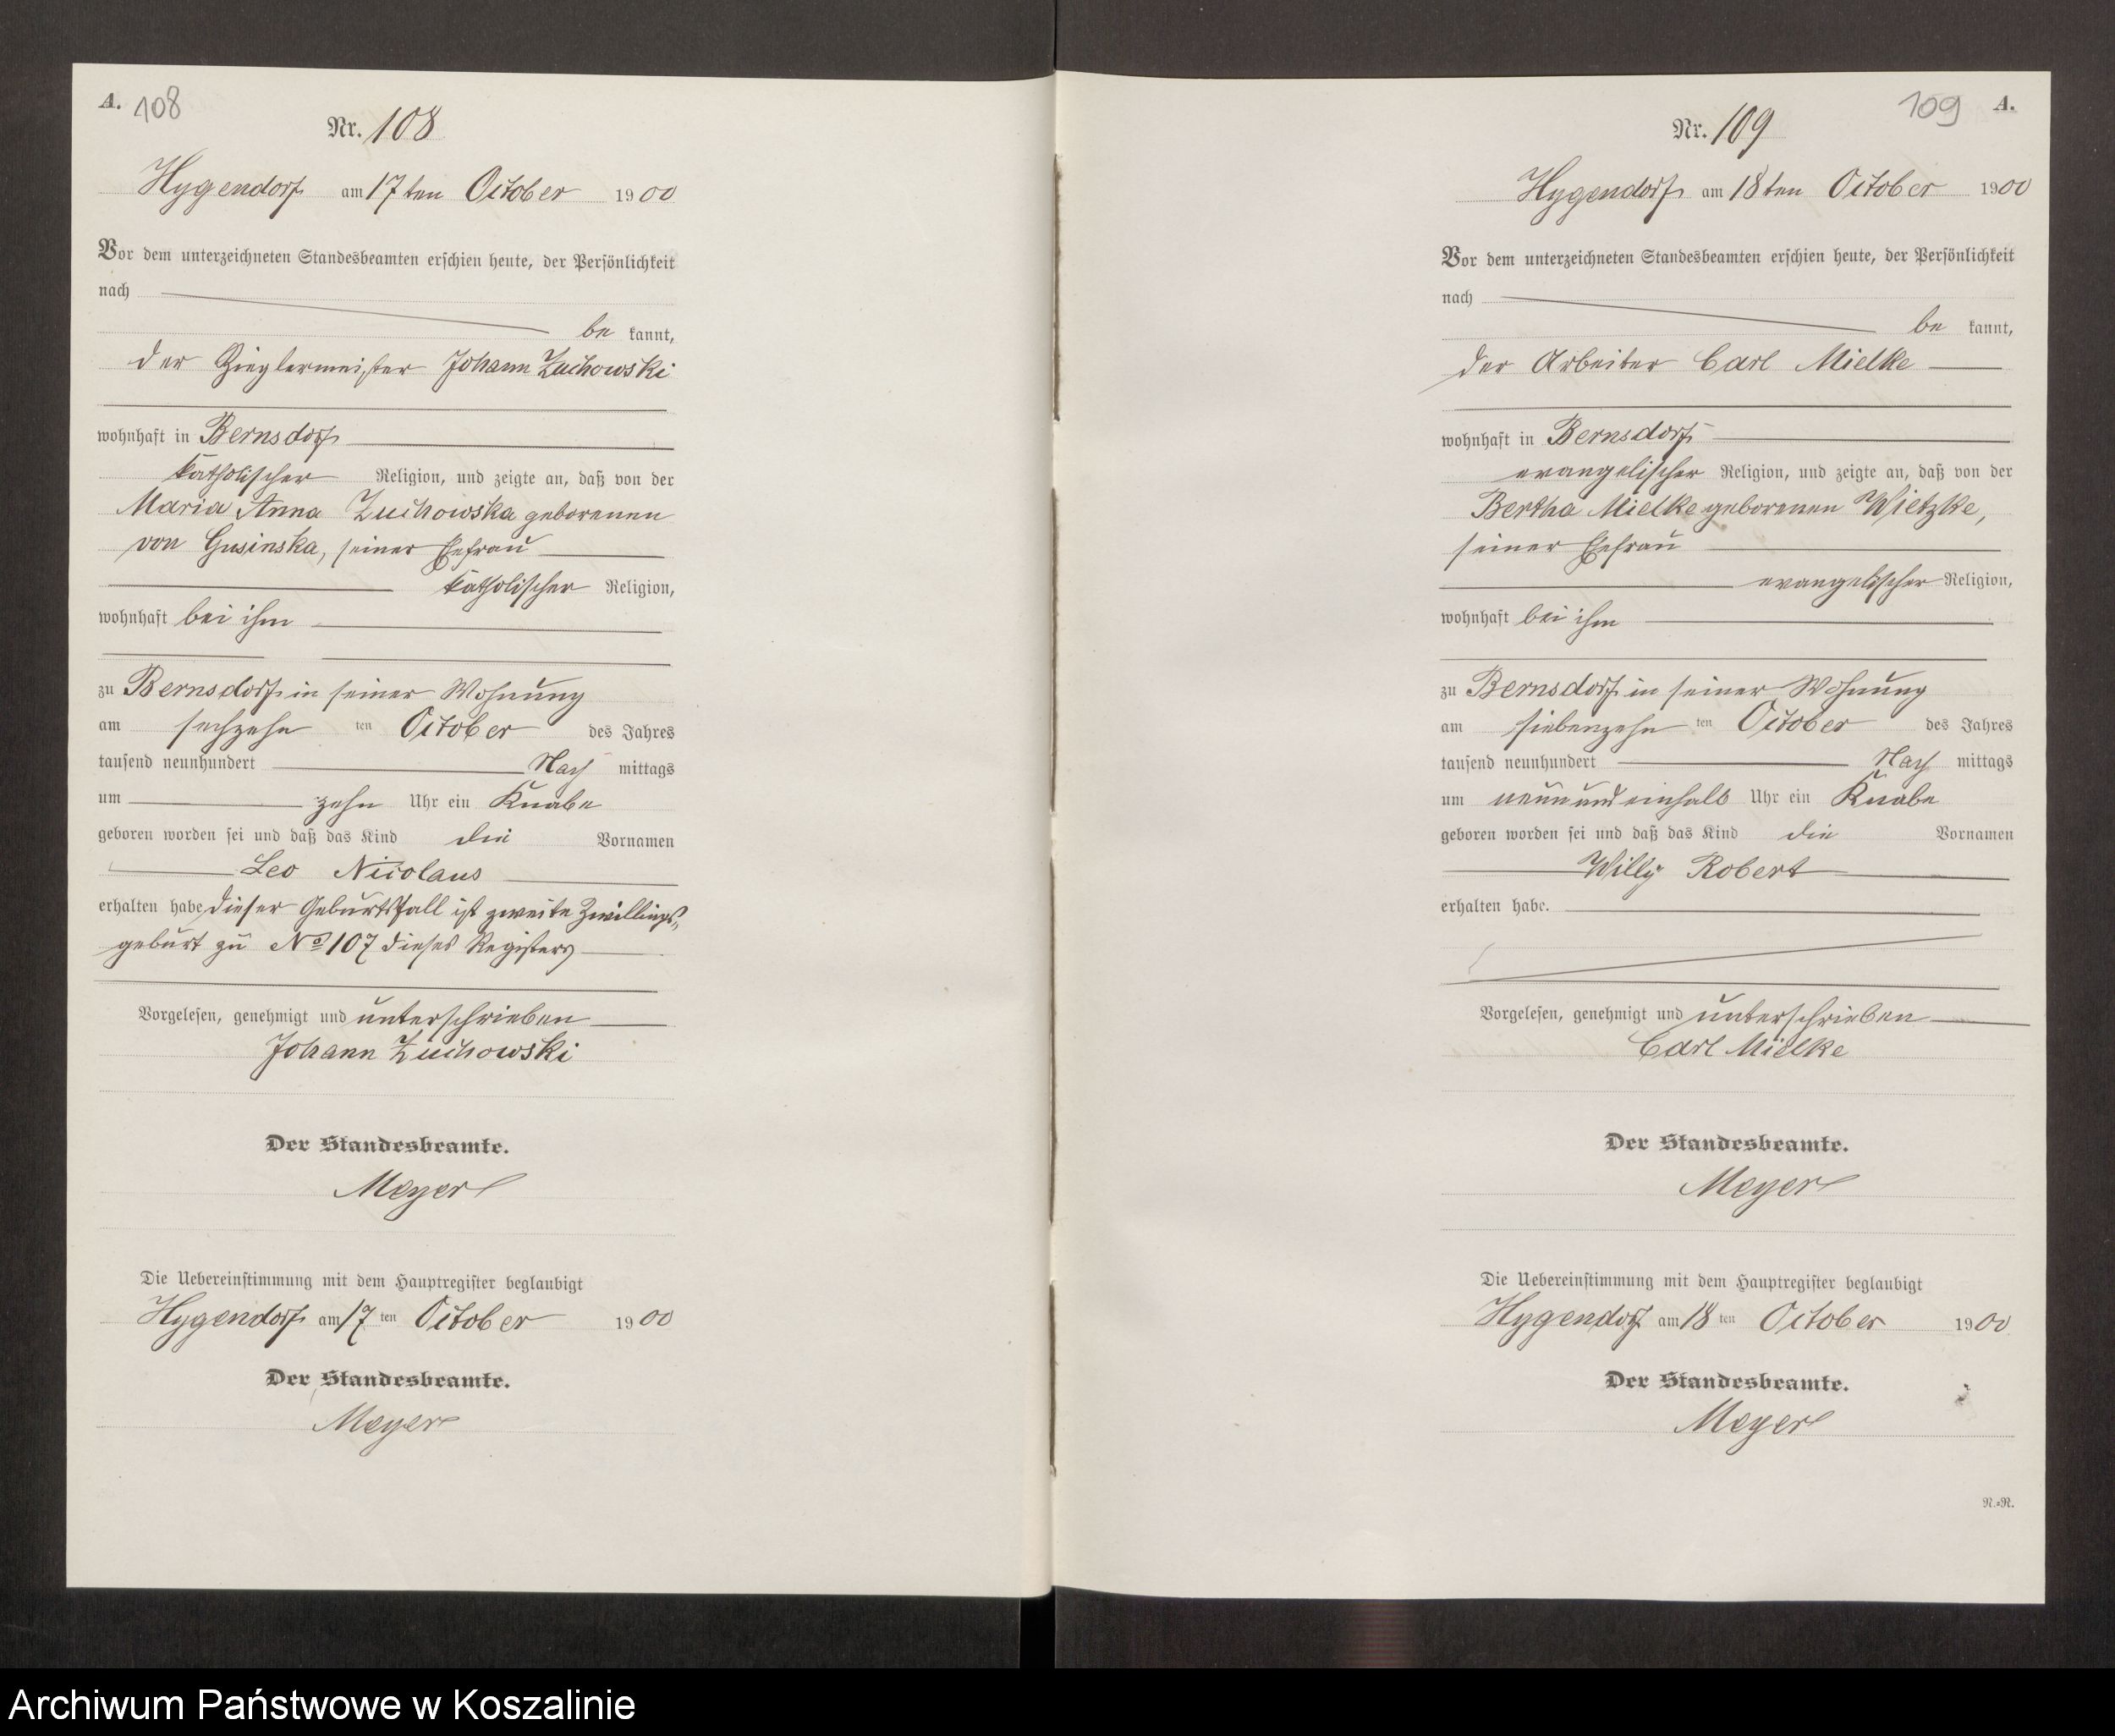 A. 108
Nr. 108
Hygendorf am 17ten October 1900
Vor dem unterzeichneten Standesbeamten erschien heute, der Persönlichkeit
nach
be kannt,
der Zieglermeister Johann Zuchowski
wohnhaft in Bernsdorf
katholischer Religion, und zeigte an, daß von der
Maria Anna Zuchowska geborenen
von Gusinska, seiner Ehefrau
katholischer Religion,
wohnhaft bei ihm
zu Bernsdorf in seiner Wohnung
am sechzehn ten October des Jahres
tausend neunhundert Nach mittags
um zehn Uhr ein Knabe
geboren worden sei und daß das Kind die Vornamen
Leo Nicolaus
erhalten habe dieser Geburtsfall ist zweite Zwillings-
geburt zu No 107 dieses Registers
Vorgelesen, genehmigt und unterschrieben
Johann Zuchowski
Der Standesbeamte.
Meyer
Die Uebereinstimmung mit dem Hauptregister beglaubigt
Hygendorf am 17 ten October 1900
Der Standesbeamte.
Meyer
109 A.
Nr. 109
Hygendorf am 18ten October 1900
Vor dem unterzeichneten Standesbeamten erschien heute, der Persönlichkeit
nach
be kannt,
der Arbeiter Carl Mielke
wohnhaft in Bernsdorf
evangelischer Religion, und zeigte an, daß von der
Bertha Mielke geborenen Wietzke,
seiner Ehefrau
evangelischer Religion,
wohnhaft bei ihm
zu Bernsdorf in seiner Wohnung
am siebenzehn ten October des Jahres
tausend neunhundert Nach mittags
um neun und einhalb Uhr ein Knabe
geboren worden sei und daß das Kind die Vornamen
Willy Robert
erhalten habe.
Vorgelesen, genehmigt und unterschrieben
Carl Mielke
Der Standesbeamte.
Meyer
Die Uebereinstimmung mit dem Hauptregister beglaubigt
Hygendorf am 18 ten October 1900
Der Standesbeamte.
Meyer
N.=N.
Archiwum Państwowe w Koszalinie